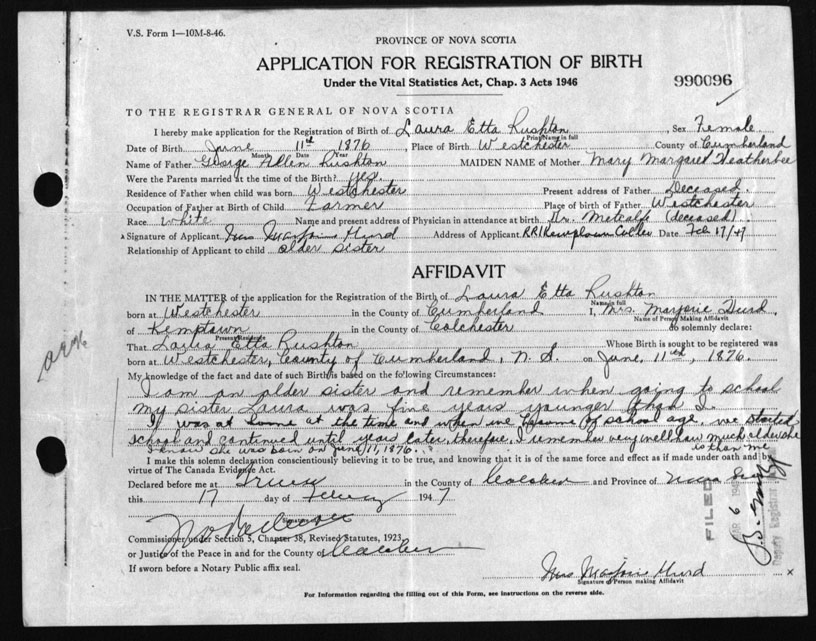 V.S. Form 1—10M-8-46.
PROVINCE OF NOVA SCOTIA
APPLICATION FOR REGISTRATION OF BIRTH
Under the Vital Statistics Act, Chap. 3 Acts 1946
990096
TO THE REGISTRAR GENERAL OF NOVA SCOTIA
I hereby make application for the Registration of Birth of Laura Etta Rushton, Sex Female
Print Name in full
Date of Birth June 11th 1876, Place of Birth Westchester County of Cumberland
Month Date Year
Name of Father George Allen Rushton MAIDEN NAME of Mother Mary Margaret Heatherbee
Were the Parents married at the time of Birth? yes.
Residence of Father when child was born Westchester Present address of Father Deceased.
Occupation of Father at Birth of Child Farmer Place of birth of Father Westchester
Race white Name and present address of Physician in attendance at birth Dr. Metcalfe (deceased)
Signature of Applicant Mrs Marjorie Hurd Address of Applicant RR1 Kemptown Colches Date Feb 17/47
Relationship of Applicant to child older sister
AFFIDAVIT
IN THE MATTER of the application for the Registration of the Birth of Laura Etta Rushton
Name in full
born at Westchester in the County of Cumberland I, Mrs. Marjorie Hurd.
Name of Person Making Affidavit
of Kemptown in the County of Colchester do solemnly declare:
Present Residence
That Laura Etta Rushton Whose Birth is sought to be registered was
born at Westchester, County of Cumberland, N. S. on June, 11th, 1876.
My knowledge of the fact and date of such Birth is based on the following Circumstances:
I am an older sister and remember when going to school
my sister Laura was five years younger than I.
It was at home at the time and when we became of school age, we started
school and continued until years later, therefore, I remember very well how much older she
I know she was born on June 11, 1876. is than me
I make this solemn declaration conscientiously believing it to be true, and knowing that it is of the same force and effect as if made under oath and by
virtue of The Canada Evidence Act.
Declared before me at Truro in the County of Colchester and Province of Nova Scotia
this 17 day of February 1947
Signature
Commissioner under Section 5, Chapter 38, Revised Statutes, 1923,
or Justice of the Peace in and for the County of Colchester
If sworn before a Notary Public affix seal.
Mrs Marjorie Hurd x
Signature of Person making Affidavit
For Information regarding the filling out of this Form, see instructions on the reverse side.
FILED
6 194
Deputy Registrar